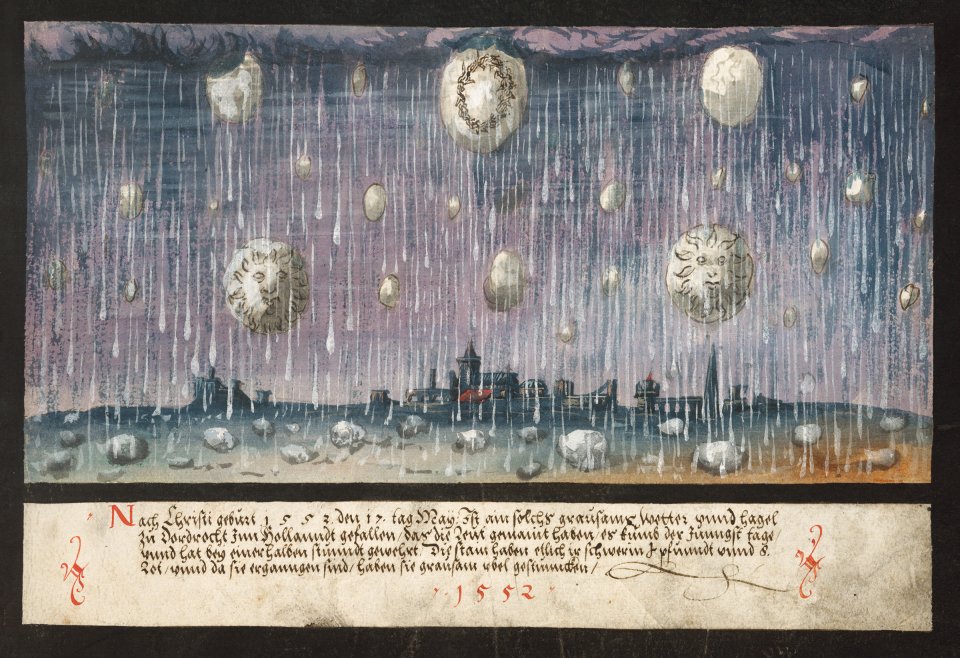 Nach Christi geburt 1552. den 17. tag May. Ist ain solchs grausams wetter vnnd hagel
zu Dordrecht Inn Hollanndt gefallen / das die leut gemaint haben / es kumb der Jungst tage /
vnnd hat bey ainer halben stunndt gewehrt. Die stain haben etlich ir schwerin 4 pfunndt vnnd 8.
Lot / vnnd da sie ergangen sind / haben sie grausam vbel gestunncken /
·1552·